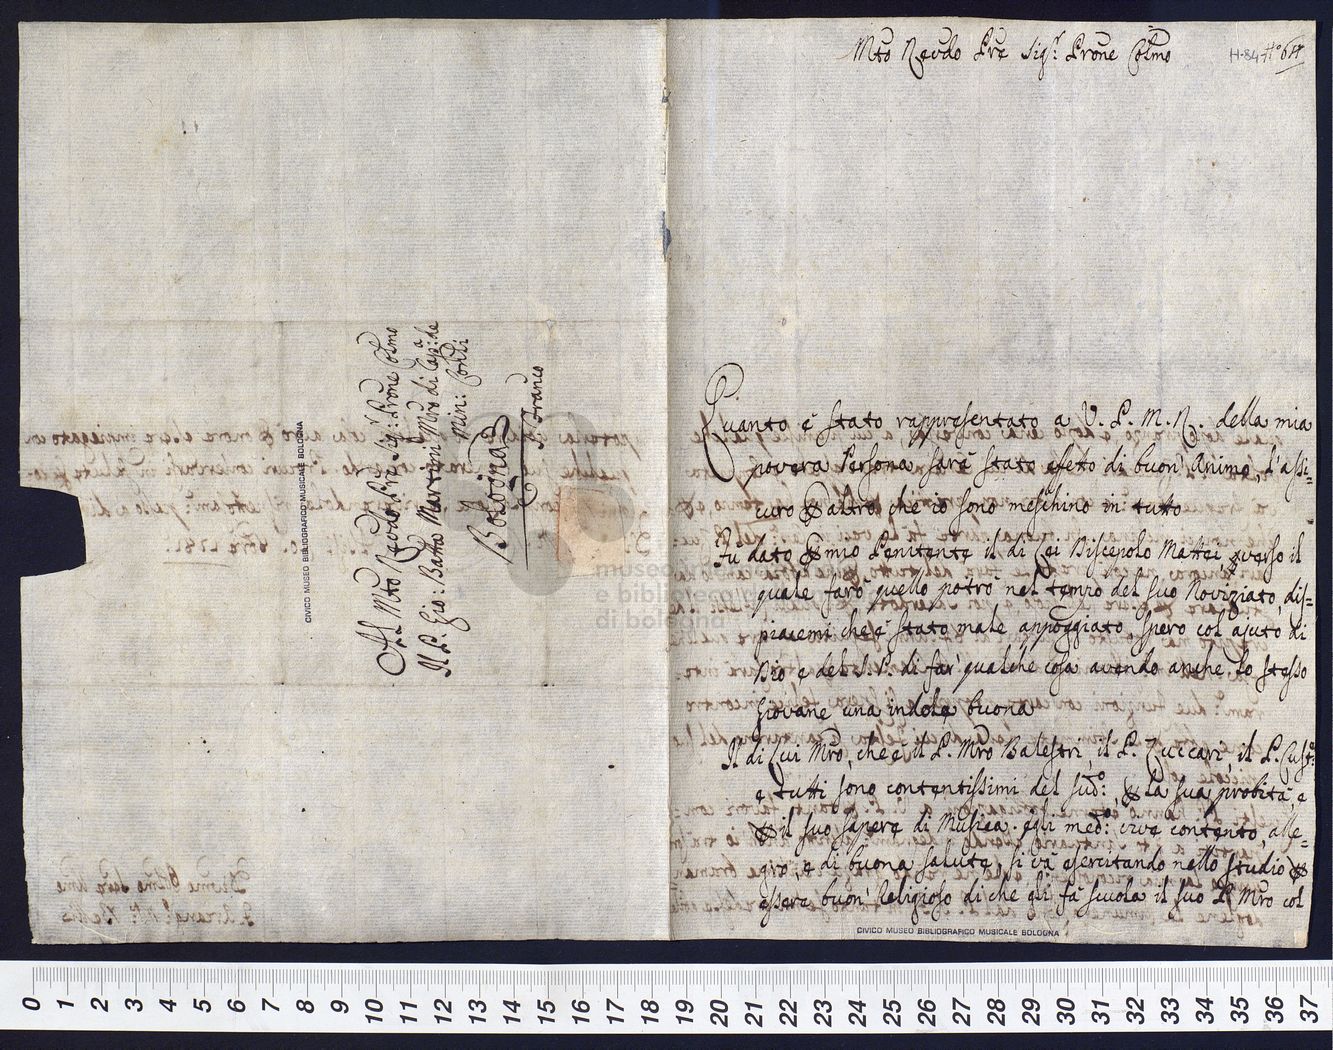 Al Mto Revdo Pre Sig:r Prone Colmo
Il P. Gio: Batta Martini Mro di Cap:la de
Min: Conli
Bologna
S. Franco
CIVICO MUSEO BIBLIOGRAFICO MUSICALE BOLOGNA
Mto Revdo Pre Sig:r Prone Colmo
H-84
Quanto è stato rappresentato a V. P. M. R. della mia
povera Persona sarà stato efetto di buon' Animo, l'assi=
curo altro, che io sono meschino in tutto
Fu dato mio Penitente il di Lei Discepolo Mattei, verso il
quale farò quello potrò nel tempo del suo Noviziato, dis=
piacemi che è stato male appoggiato spero col ajuto di
Dio e del S. P. di far' qualche cosa avendo anche lo stesso
Giovane una indole buona
Il di Lui Mro, che è il P. Mro Balestri, il P. Zuccari, il P. Cust:e
e tutti sono contentissimi del sud:o, la sua probità, e
il suo sapere di Musica. egli med:o vive contento, alle=
gro, e di buona salute, si và esercitando nello studio
essere buon' Religioso di che gli fà scuola il suo P. Mro col
CIVICO MUSEO BIBLIOGRAFICO MUSICALE BOLOGNA
museo internazionale
e biblioteca della musica
di bologna
0 1 2 3 4 5 6 7 8 9 10 11 12 13 14 15 16 17 18 19 20 21 22 23 24 25 26 27 28 29 30 31 32 33 34 35 36 37